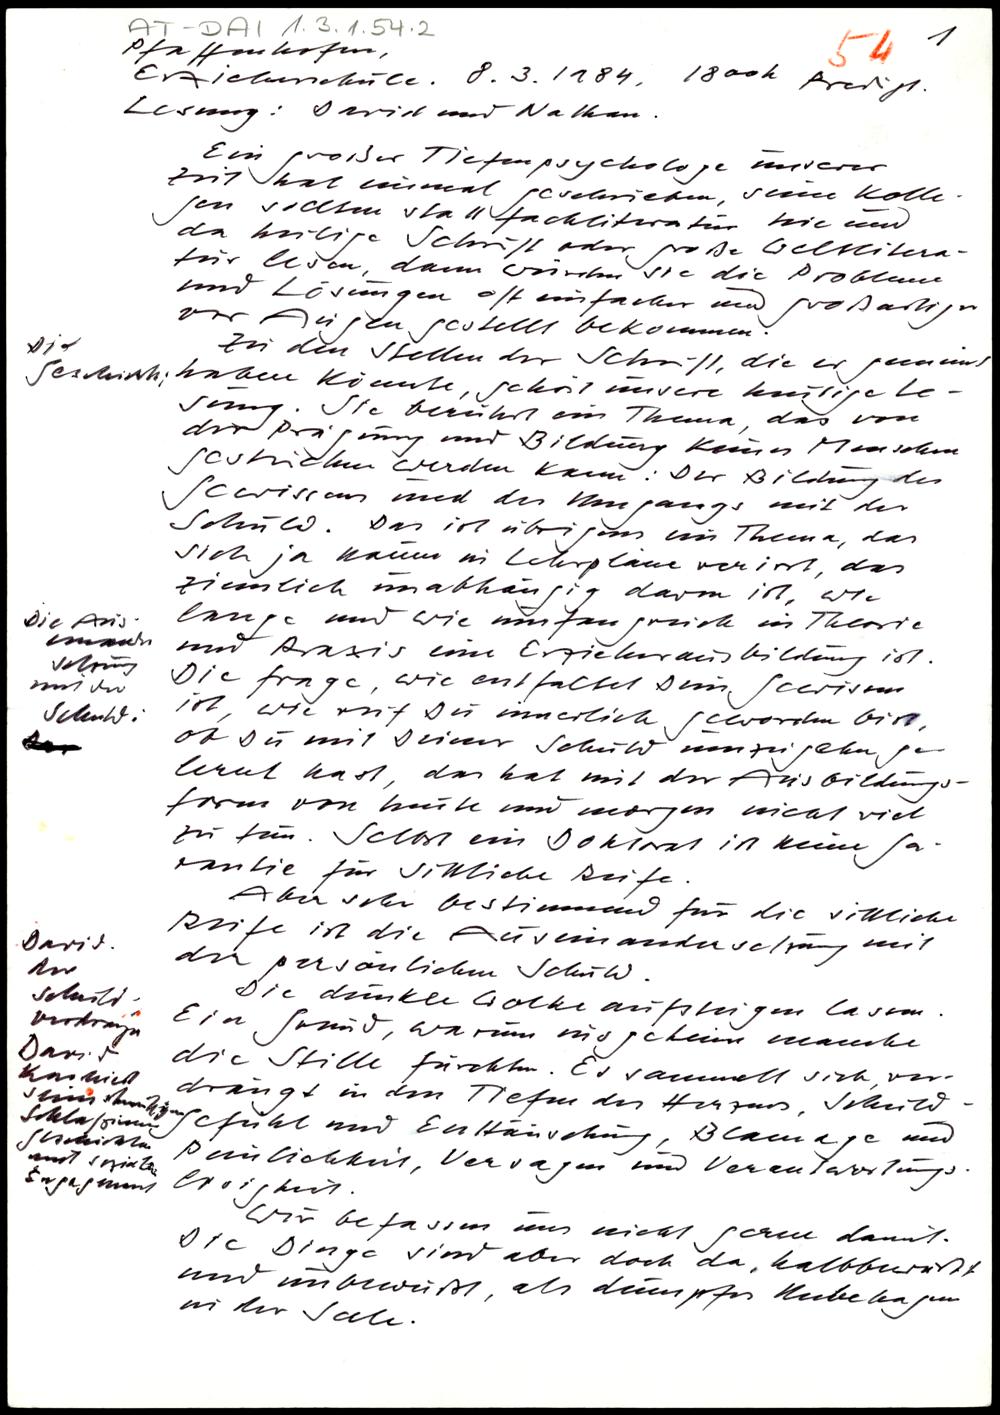 AT-DAI 1.3.1.54.2
54 1
Pfaffenhofen,
Erzieherschule. 8.3.1984, 18ooh Predigt.
Lesung: David und Nathan.
Ein großer Tiefenpsychologe unserer
Zeit hat einmal geschrieben, seine Kolle-
gen sollten statt Fachliteratur hie und
da heilige Schrift oder große Weltlitera-
tur lesen, dann würden sie die Probleme
und Lösungen oft einfacher und großartiger
vor Augen gestellt bekommen.
Zu den Stellen der Schrift, die er gemeint
haben könnte, gehört unsere heutige Le-
sung. Sie berührt ein Thema, das von
der Prägung und Bildung keines Menschen
gestrichen werden kann: Der Bildung des
Gewissens und des Umgangs mit der
Schuld. Das ist übrigens ein Thema, das
sich ja kaum in Lehrpläne verirrt, das
ziemlich unabhängig davon ist, wie
lange und wie umfangreich in Theorie
und Praxis eine Erzieherausbildung ist.
Die Frage, wie entfaltet Dein Gewissen
ist, wie reif Du innerlich geworden bist,
ob Du mit Deiner Schuld umzugehen ge-
lernt hast, das hat mit der Ausbildungs-
form von heute und morgen nicht viel
zu tun. Selbst ein Doktorat ist keine Ga-
rantie für sittliche Reife.
Aber sehr bestimmend für die sittliche
Reife ist die Auseinandersetzung mit
der persönlichen Schuld.
Die dunkle Wolke aufsteigen lassen.
Ein Grund, warum insgeheim manche
die Stille fürchten. Es sammelt sich, ver-
drängt in den Tiefen des Herzens, Schuld-
gefühl und Enttäuschung, Blamage und
Peinlichkeit, Versagen und Verantwortungs-
losigkeit.
Wir befassen uns nicht gerne damit.
Die Dinge sind aber doch da, halbbewußt
und unbewußt, als dumpfes Unbehagen
in der Seele.
Die
Geschichte;
Die Aus-
einander
setzung
mit der
Schuld:
David.
der
Schuld-
verdränger
David
kaschiert
seine
Schlafzimmer
geschichten
mit sozialem
Engagement